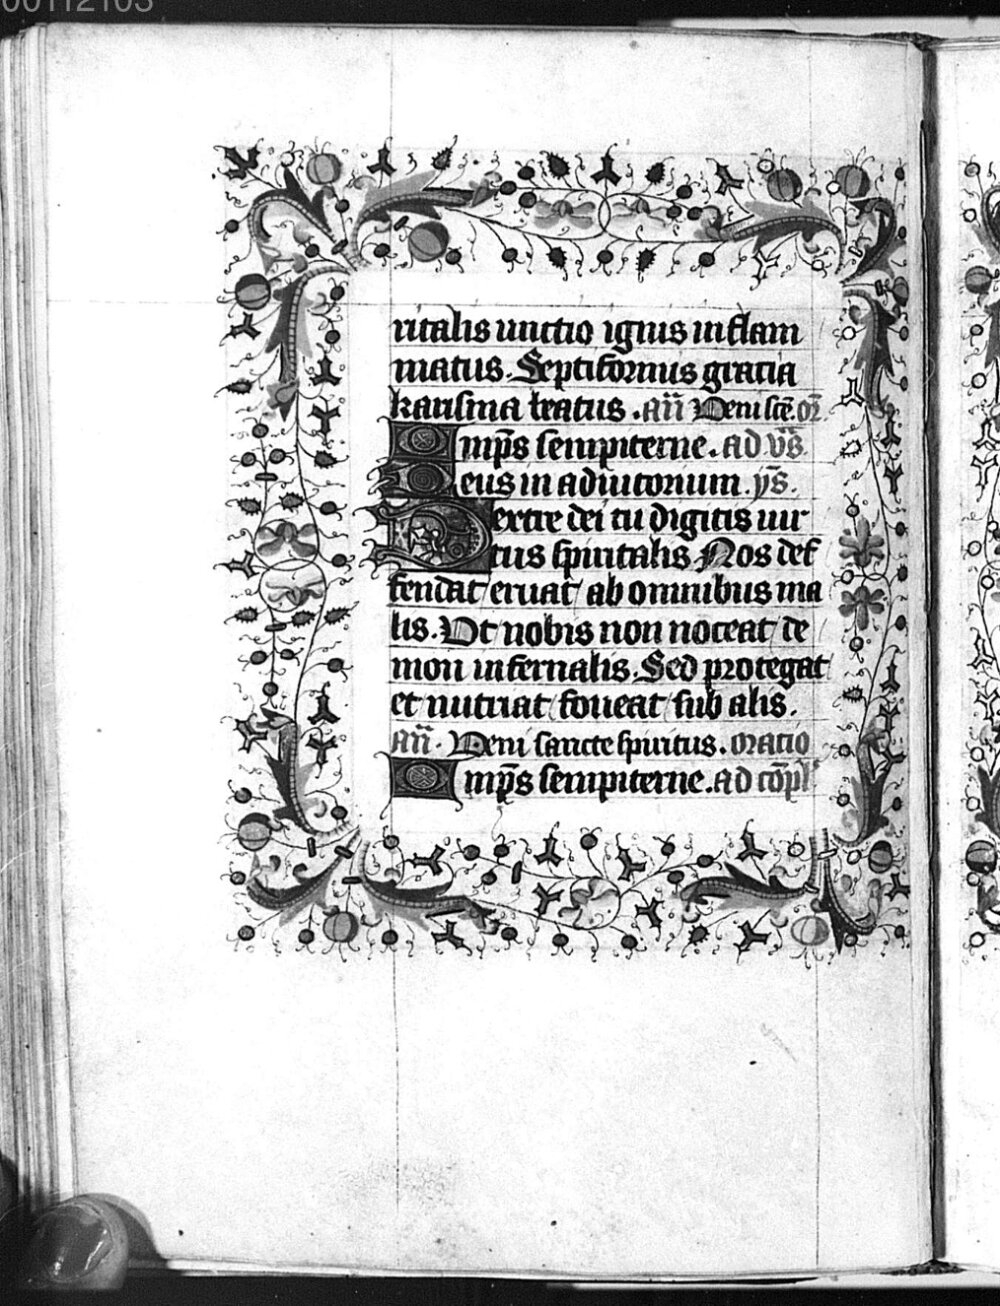 00112103
ritalis unctio ignis inflam
matus. Septiformis gracia
karisma beatus. Añ Veni scē. or̄.
Omp̄s sempiterne. Ad vs̄
Deus in adiutorium. ys̄.
Dextre dei tu digitis uir
tus spiritalis Nos def
fendat eruat ab omnibus ma
lis. Ut nobis non noceat de
mon infernalis. Sed protegat
et nutriat foueat sub alis.
Añ. Veni sancte spiritus. oratio
Omp̄s sempiterne. Ad cōpl'